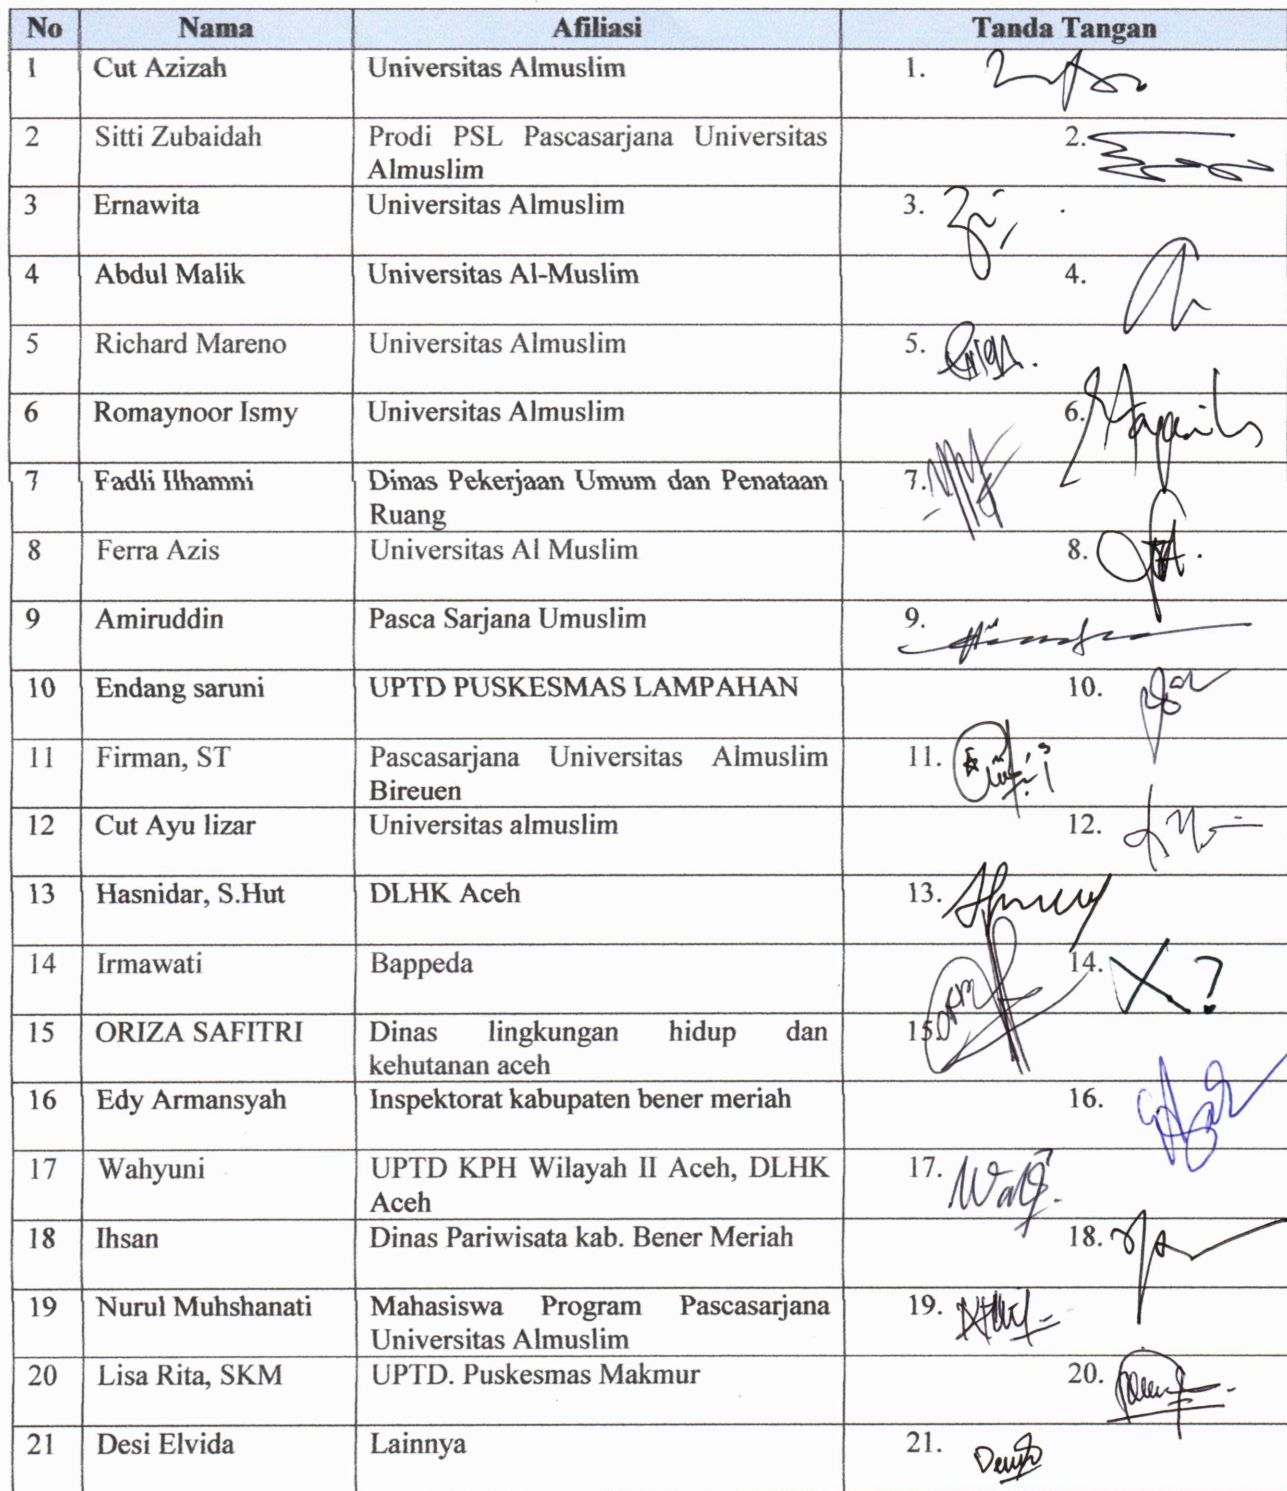 No Nama Afiliasi Tanda Tangan
1 Cut Azizah Universitas Almuslim 1.
2 Sitti Zubaidah Prodi PSL Pascasarjana Universitas 2.
Almuslim
3 Ernawita Universitas Almuslim 3.
4 Abdul Malik Universitas Al-Muslim 4.
5 Richard Mareno Universitas Almuslim 5.
6 Romaynoor Ismy Universitas Almuslim 6.
7 Fadli Ilhamni Dinas Pekerjaan Umum dan Penataan 7.
Ruang
8 Ferra Azis Universitas Al Muslim 8.
9 Amiruddin Pasca Sarjana Umuslim 9.
10 Endang saruni UPTD PUSKESMAS LAMPAHAN 10.
11 Firman, ST Pascasarjana Universitas Almuslim 11.
Bireuen
12 Cut Ayu lizar Universitas almuslim 12.
13 Hasnidar, S.Hut DLHK Aceh 13.
14 Irmawati Bappeda 14. X ?
15 ORIZA SAFITRI Dinas lingkungan hidup dan 15.
kehutanan aceh
16 Edy Armansyah Inspektorat kabupaten bener meriah 16.
17 Wahyuni UPTD KPH Wilayah II Aceh, DLHK 17.
Aceh
18 Ihsan Dinas Pariwisata kab. Bener Meriah 18.
19 Nurul Muhshanati Mahasiswa Program Pascasarjana 19.
Universitas Almuslim
20 Lisa Rita, SKM UPTD. Puskesmas Makmur 20.
21 Desi Elvida Lainnya 21.